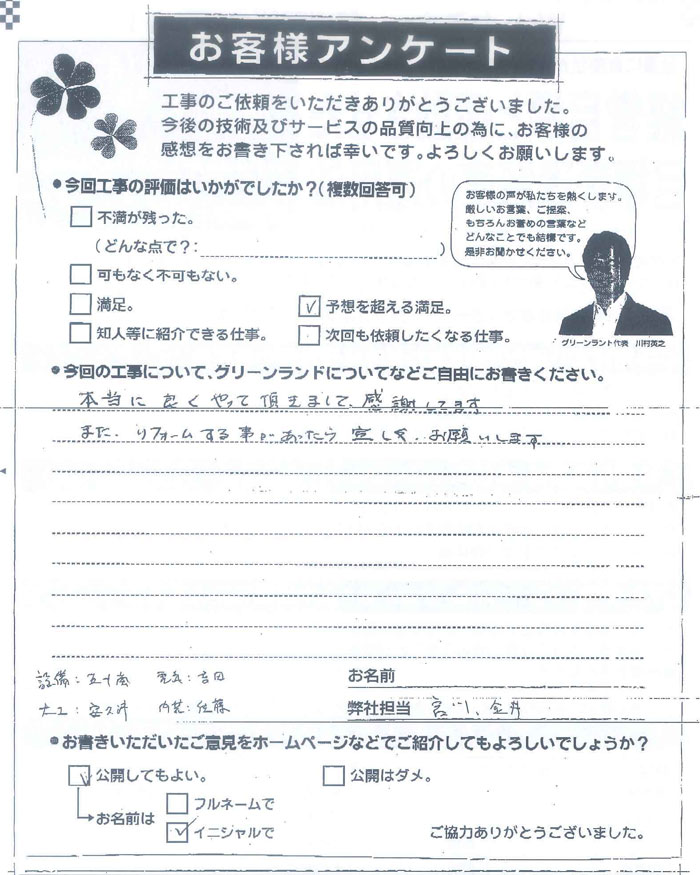 お客様アンケート
工事のご依頼をいただきありがとうございました。
今後の技術及びサービスの品質向上の為に、お客様の
感想をお書き下されば幸いです。よろしくお願いします。
●今回工事の評価はいかがでしたか？（複数回答可）
お客様の声が私たちを熱くします。
厳しいお言葉、ご提案、
もちろんお誉めの言葉など
どんなことでも結構です。
是非お聞かせください。
不満が残った。
（どんな点で？：　）
可もなく不可もない。
満足。
予想を超える満足。
知人等に紹介できる仕事。
次回も依頼したくなる仕事。
グリーンランド代表 川村英之
●今回の工事について、グリーンランドについてなどご自由にお書きください。
本当に良くやって頂きまして、感謝してます
また、リフォームする事があったら宜しく、お願いします
設備：五十嵐 電気：吉田
大工： 内装：佐藤
お名前
弊社担当 宮川、金井
●お書きいただいたご意見をホームページなどでご紹介してもよろしいでしょうか？
公開してもよい。
公開はダメ。
お名前は
フルネームで
イニシャルで
ご協力ありがとうございました。